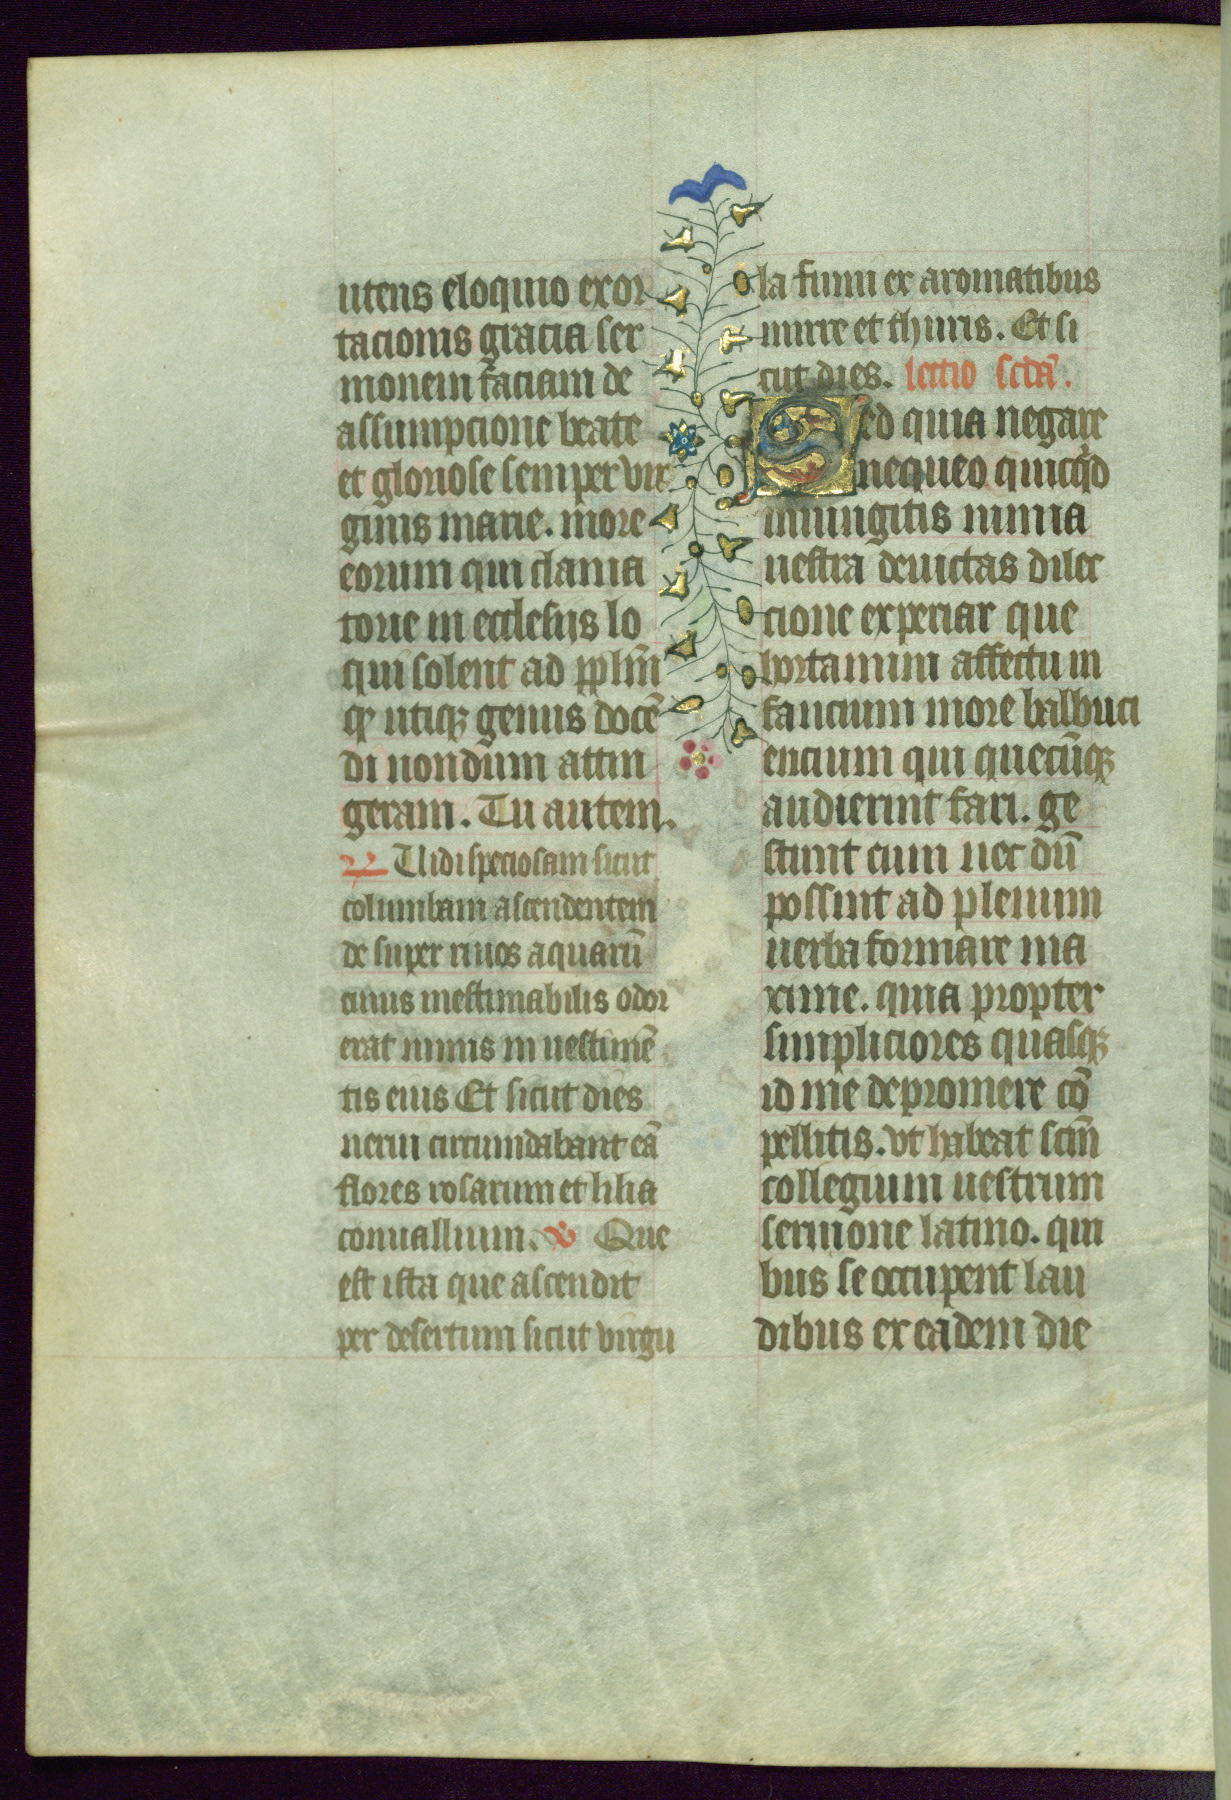 utens eloquio exor
tacionis gracia ser
monem faciam de
assumpcione beate
et gloriose semper vir
ginis marie. more
eorum qui clama
torie in ecclesijs lo
qui solent ad pplm̄
qꝫ utiqꝫ genus docē
di nondum attin
geram. Tu autem.
℟ Uidi speciosam sicut
columbam ascendentem
de super riuos aquarū
cuius inestimabilis odor
erat nimis in uestimē
tis eius Et sicut dies
uerni circumdabant eā
flores rosarum et lilia
conuallium. ℣ Que
est ista que ascendit
per desertum sicut virgu
la fumi ex aromatibus
mirre et thuris. Et si
cut dies. lectio scdā.
Sed quia negare
nequeo quicqͥd
iniungitis nimia
uestra deuictas dilec
cione experiar que
hortamini affectu in
fancium more balbuci
encium qui quecūqꝫ
audierint fari. ge
stiunt cum nec dū
possint ad plenum
uerba formare ma
xime. quia propter
simpliciores quasqꝫ
id me depromere cō
pellitis. vt habeat scm̄
collegium uestrum
sermone latino. qui
bus se occupent lau
dibus ex eadem die